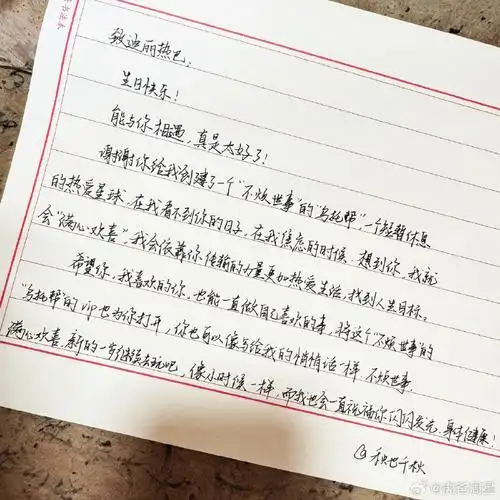 致迪丽热巴：
生日快乐！
能与你相遇，真是太好了！
谢谢你给我创建了一个“不烦世事”的“乌托帮”，一个短暂休息
的热爱星球，在我看不到你的日子，在我焦虑的时候，想到你，我就
会“满心欢喜”我会依靠你传输的力量更加热爱生活，找到人生目标。
希望你，我喜欢的你，也能一直做自己喜欢的事，将这个“不烦世事”的
“乌托帮”的vip也为你打开，你也可以像写给我的悄悄话一样，不烦世事，
满心欢喜，新的一岁继续去玩吧，像小时候一样，而我也会一直祝福你闪闪发光，身体健康！
@秧也千秋